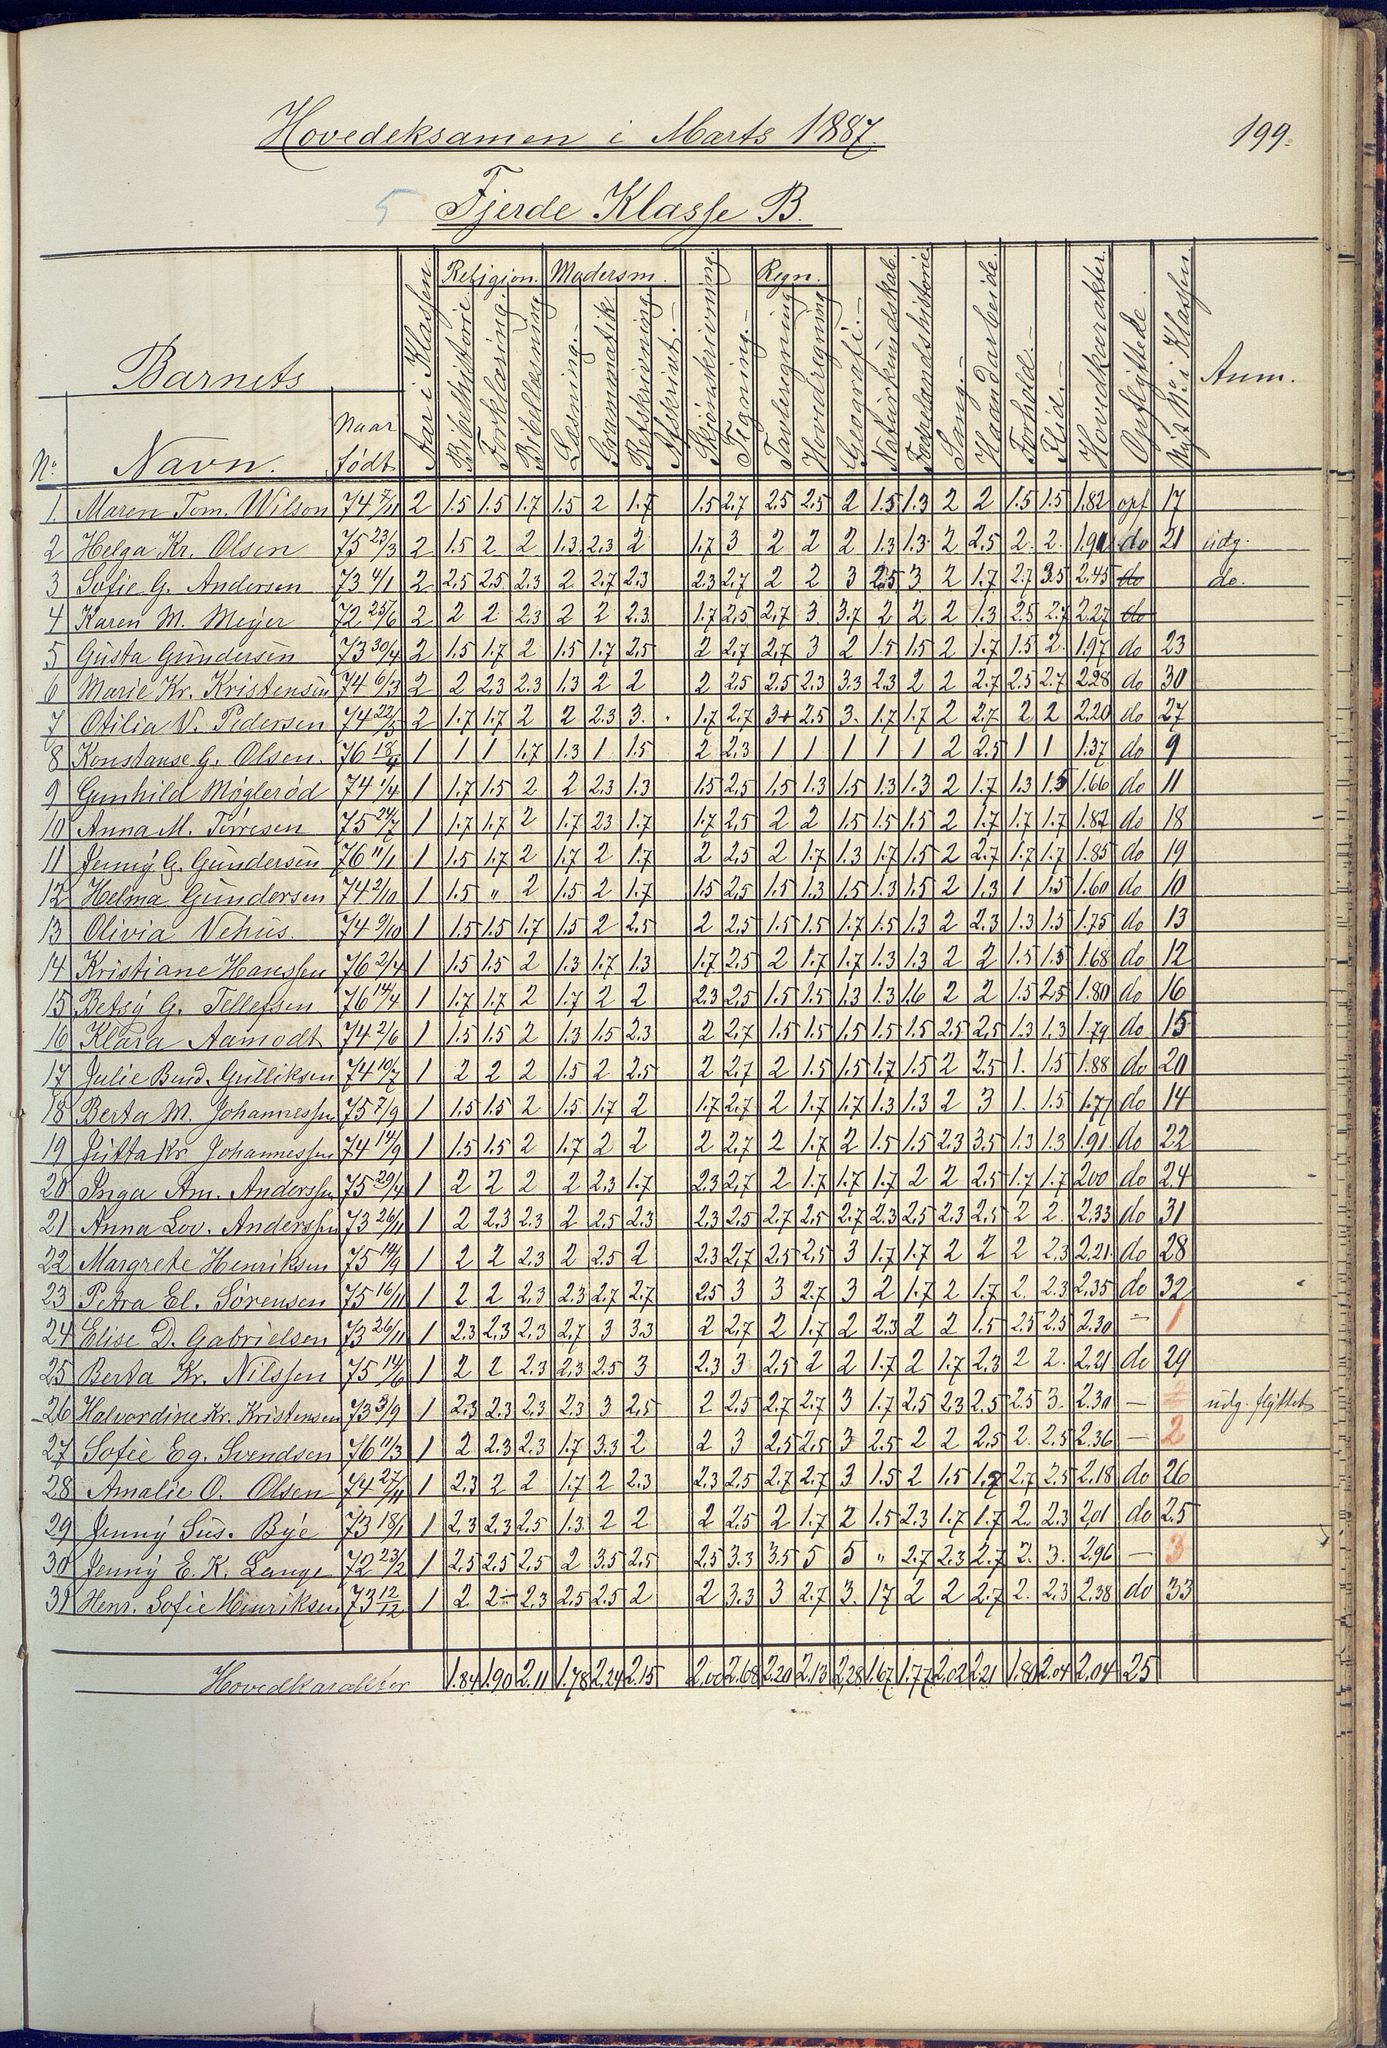 199.
Hovedeksamen i Marts 1887.
5 Fjerde Klasse B.
Barnets
No. Navn. Naar født Aar i Klassen. Religion. Bibelhistorie. Forklaring. Bibellæsning Modersm. Læsning. Grammatik. Retskrivning Afskrivt. Skjønskrivning. Tegning. Regn. Tavleregning Hovedregning Geografi. Naturkundskab. Fædrelandshistorie. Sang. Haandarbeide. Forhold. Flid. Hovedkarakter. Opflyttede. Nyt No. i Klassen. Anm.
1. Maren Tom. Wilson 74 7/11 2 1.5 1.5 1.7 1.5 2 1.7 1.5 2.7 2.5 2.5 2 1.5 1.3 2 2 1.5 1.5 1.82 opf 17
2 Helga Kr. Olsen 75 23/3 2 1.5 2 2 1.3 2.3 2 1.7 3 2 2 2 1.3 1.3 2 2.5 2. 2. 1.90 do 21 udg.
3 Sofie G. Andersen 73 4/1 2 2.5 2.5 2.3 2 2.7 2.3 2.3 2.7 2 2 3 2.5 3 2 1.7 2.7 3.5 2.45 do do.
4 Karen M. Meyer 72 25/6 2 2 2 2.3 2 2 2.3 1.7 2.5 2.7 3 3.7 2 2 2 1.3 2.5 2.7 2.27 do
5 Gusta Gundersen 73 30/4 2 1.5 1.7 2 1.5 1.7 2.5 2 2.7 2.7 3 2 1.5 1.5 2 1.7 1.5 2. 1.97 do 23
6 Marie Kr. Kristensen 74 6/3 2 2 2.3 2.3 1.3 2 2 2 2.5 2.5 2.3 3.3 2.3 2 2 2.7 2.5 2.7 2.28 do 30
7 Otilia V. Pedersen 74 22/5 2 1.7 1.7 2 2 2.3 3. 1.7 2.7 3+ 2.5 3. 1.7 1.7 2 2.7 2 2 2.20 do 27
8 Konstanse G. Olsen. 76 18/4 1 1 1 1.7 1.3 1 1.5 2 2.3 1 1 1 1 1 2 2.5 1 1 1.37 do 9
9 Gunhild Møglerød 74 1/4 1 1.7 1.5 2 2 2.3 1.3 1.5 2.5 1.5 1.3 1.5 1.3 1.3 2 1.7 1.3 1.5 1.66 do 11
10 Anna M. Tørresen 75 24/7 1 1.7 1.7 2 1.7 2.3 1.7 1.7 2.5 2 2 1.5 1.5 1.5 2 1.7 1.7 1.7 1.82 do 18
11 Jenny G. Gundersen 76 11/1 1 1.5 1.7 2 1.7 2 1.7 2 2.5 2 1.7 1.3 1.7 1.5 2 2.7 1.7 1.7 1.85 do 19
12 Helma Gundersen 74 2/10 1 1.5 " 2 1.5 2 1.7 1.5 2.5 1.5 1.3 1.5 1.3 1.5 2 1.3 1 1.5 1.60 do 10
13 Olivia Vehus. 74 9/10 1 1.5 1.5 1.7 1.5 2 2.5 2 2.5 1.5 1.5 1.7 1.5 1.3 2 2.3 1.3 1.3 1.75 do 13
14 Kristiane Hanssen 76 2/4 1 1.5 1.5 2 1.3 1.7 1.3 1.7 2.5 2 1.7 1.7 1.3 1.3 2 2 1.5 1.3 1.68 do 12
15 Betsy G. Tellefsen 76 14/4 1 1.7 1.7 2 1.7 2 2 2.3 2.5 1.5 1.5 1.3 1.3 1.6 2 2 1.5 2.5 1.80 do 16
16 Klara Aamodt 74 2/6 1 1.5 1.5 2 1.3 1.5 2.3 2 2.7 1.5 1.5 1.5 1.5 1.5 2.5 2.5 1.3 1.3 1.79 do 15
17 Julie Bend. Gulliksen 74 10/7 1 2 2 2 1.5 2 2.5 2 2.7 2 1.5 1.5 1.7 1.5 2 2.5 1. 1.5 1.88 do 20
18 Berta M. Johannessen 75 7/9 1 1.5 1.5 2 1.5 1.7 2 1.7 2.7 2 1.7 1.7 1.3 1.3 2 3 1. 1.5 1.77 do 14
19 Jutta Kr. Johannessen 74 14/9 1 1.5 1.5 2 1.7 2 2 2 2.7 2 1.7 2 1.5 1.5 2.3 3.5 1.3 1.3 1.91 do 22
20 Inga Am. Anderssen 75 29/4 1 2 2 2 2 2.3 1.7 2.3 2.7 2 1.7 1.7 1.7 2 2 2.5 1.7 1.7 2.00 do 24
21 Anna Lov. Anderssen 73 26/11 1 2 2.3 2.3 2 2.5 2.3 2.3 2.5 2.7 2.5 2.7 2.3 2.5 2.3 2.5 2 2. 2.33 do 31
22 Margrete Henriksen 75 14/9 1 2 2 2.3 2 2.5 2 2.3 2.7 2.5 2.5 3 1.7 1.7 2 2 2 2.3 2.21 do 28
23 Petra El. Sørensen 75 16/11 1 2 2 2.3 2.3 2.7 2.7 2.5 3 3 2.7 3 2 1.7 2 1.7 2. 2.3 2.35 do 32
24 Elise D. Gabrielsen 73 26/11 1 2.3 2.3 2.3 2.7 3 3.3 2 2.7 2 1.7 2 2.3 2 2 1.5 2.5 2.5 2.30 — 1
25 Berta Kr. Nilssen 75 14/6 1 2 2 2.3 2.3 2.5 3 2.3 3 2.5 2 2 1.7 2 1.7 2.3 2 2. 2.21 do 29
26 Halvordine Kr. Kristensen 73 3/9 1 2.3 2.3 2.3 2.3 3 2.5 2 2.5 2.7 2.7 3 1.7 2.5 2.3 2.5 2.5 3. 2.30 — 2 udg. flyttet
27 Sofie Eg. Svendsen 76 11/3 1 2 2.3 2.3 1.7 3.3 2 2 3 2.5 2.5 3 2.5 2 2 2.5 2. 2.5 2.36 — 2
28 Amalie O. Olsen 74 27/11 1 2.3 2 2 1.7 2 2.3 2.3 2.5 2.7 2.7 3 1.5 2 1.5 1.7 2.7 2.5 2.18 do 26
29 Jenny Sus. Bye 73 18/1 1 2.3 2.3 2.5 1.3 2 2 2 2.5 2 1.7 2 1.5 2.3 1.7 1.7 2. 2.3 2.01 do 25
30 Jenny E. K. Lange 72 23/2 1 2.5 2.5 2.5 2 3.5 2.5 2.5 3.3 3.5 5 5 " 2.7 2.3 2.7 2. 3. 2.96 — 3
31 Henr. Sofie Henriksen 73 12/12 1 2 2 2.3 2.5 2.5 2 2 3.3 3 2.7 3. 1.7 2 2 2.7 2. 2.3 2.38 do 33
Hovedkarakter 1.84 1.90 2.11 1.78 2.24 2.15 2.00 2.68 2.20 2.13 2.28 1.67 1.77 2.02 2.21 1.80 2.04 2.04 25